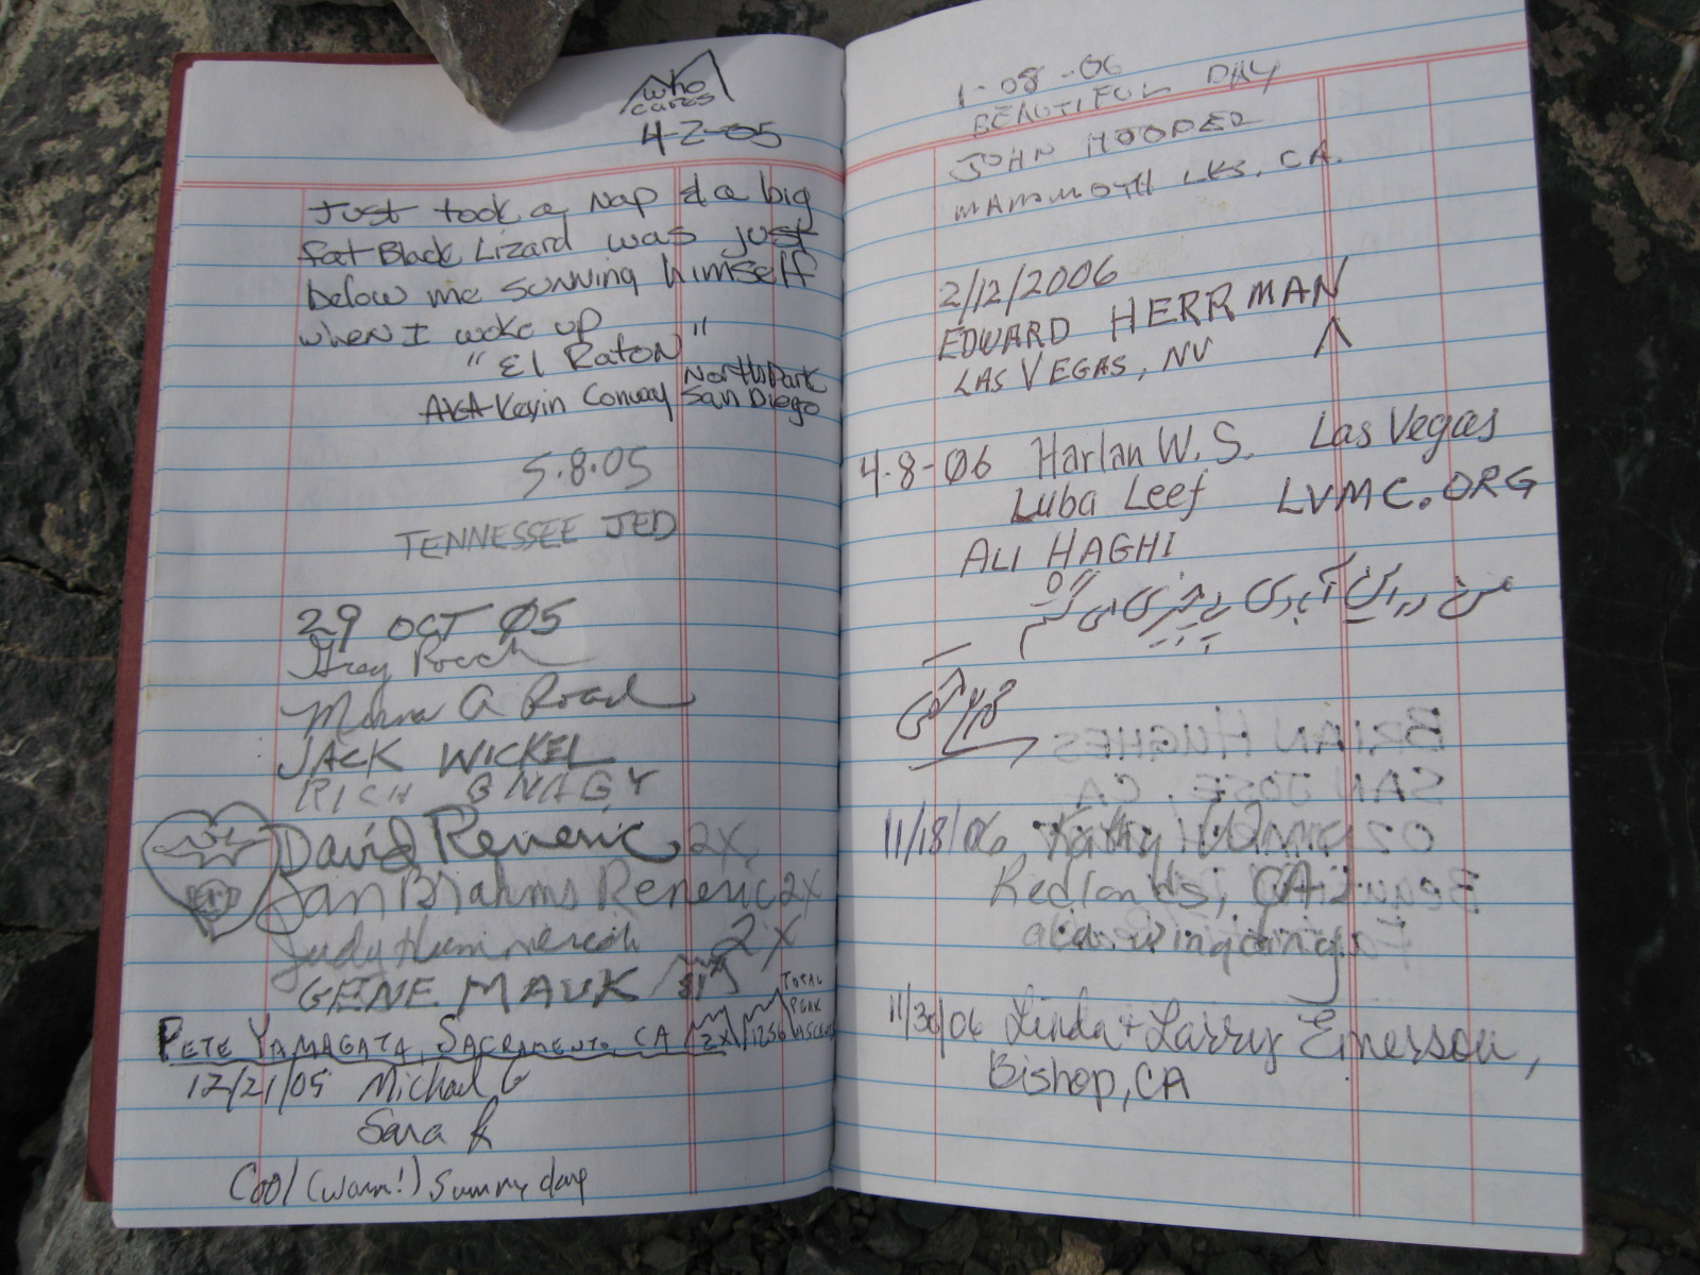 who
cares
4-2-05
Just took a Nap & a big
fat Black Lizard was just
below me sunning himself
when I woke up
"El Raton"
AKA Kevin Conway North Park
San Diego
5.8.05
TENNESSEE JED
29 OCT 05
Greg Roach
A Road
JACK WICKEL
RICH GNAGY
David Reneric 2X
Jan Brahms Reneric 2X
Judy 2X
GENE MAUK
PETE YAMAGATA, SACRAMENTO, CA 2X 1256 TOTAL
PEAK
ASCENTS
12/21/05 Michael G
Sara K
Cool (warm!) Sunny day
1-08-06
BEAUTIFUL DAY
JOHN HOOPER
MAMMOTH LKS, CA.
2/12/2006
EDWARD HERRMAN
LAS VEGAS, NV
4-8-06 Harlan W. S. Las Vegas
Luba Leef LVMC.ORG
ALI HAGHI
BRIAN HUGHES
SAN JOSE, CA
11/18/06 Kathy
Redlands, CA
11/30/06 Linda + Larry Emerson,
Bishop, CA